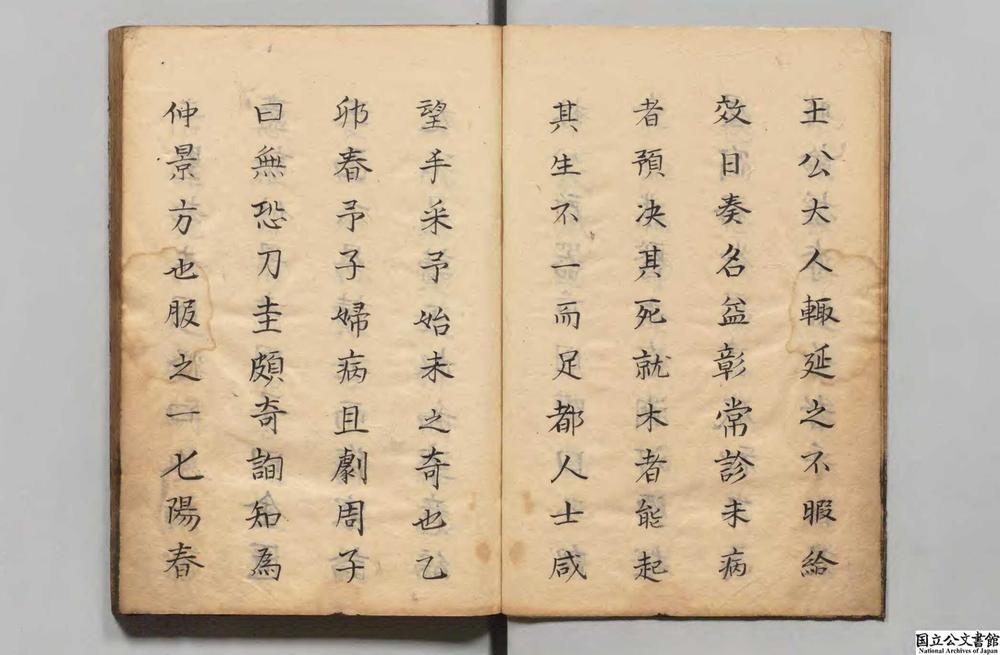 王公大人輙延之不暇給
效日奏名益彰常診未病
者預决其死就木者能起
其生不一而足都人士咸
望手采予始未之奇也乙
夘春予子婦病且劇周子
曰無恐刀圭頗奇詢知為
仲景方也服之一七陽春
国立公文書館
National Archives of Japan